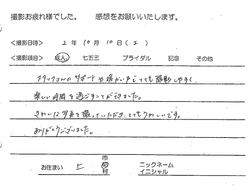 撮影お疲れ様でした。　感想をお願いいたします。
<撮影日時>　2年10月10日(土)
<撮影項目>　成人　七五三　ブライダル　記念　その他
スタッフさんのサポートや盛り上げもとても撮影しやすく
楽しい時間を過ごすことができました。
きれいな写真を撮っていただき、とてもうれしいです。
ありがとうございました。
お住まい　市町村　ニックネーム イニシャル